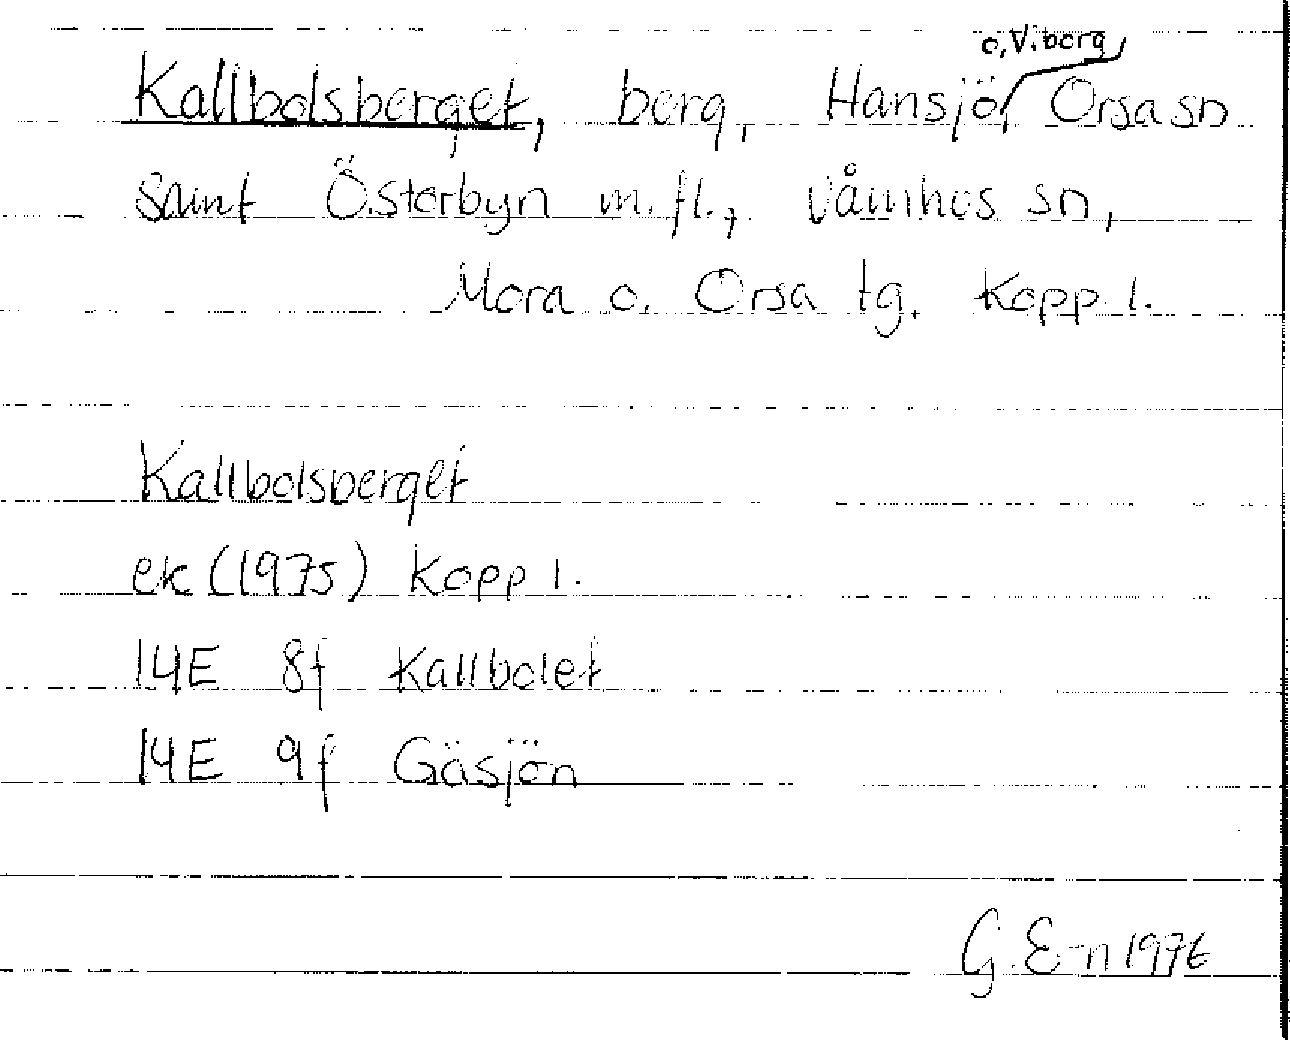 o. V. berg,
Kallbolsberget, berg, Hansjö, Orsa sn
samt Österbyn m.fl., Våmhus sn,
Mora o. Orsa tg. Kopp l.
Kallbolsberget
ek (1975) Kopp l.
14E 8f Kallbolet
14E 9f Gäsjön
G. E-n 1976